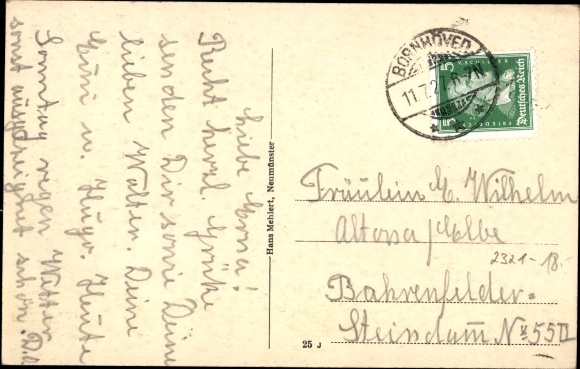 Liebe Erna!
Recht herzl. Grüße
senden Dir sowie Deine
lieben Walter. Deine
u. Hugo. Heute
Sonntag regen Wetter
sonst schön.
Hans Mehlert, Neumünster
25 J
BORNHÖVED
11.7.2
5
F. V. SCHILLER
Deutsches Reich
FRIEDRICH
5
Fräulein E. Wilhelm
Altona/Elbe
2321 -18.-
Bahrenfelder-
Steindamm No 55 II